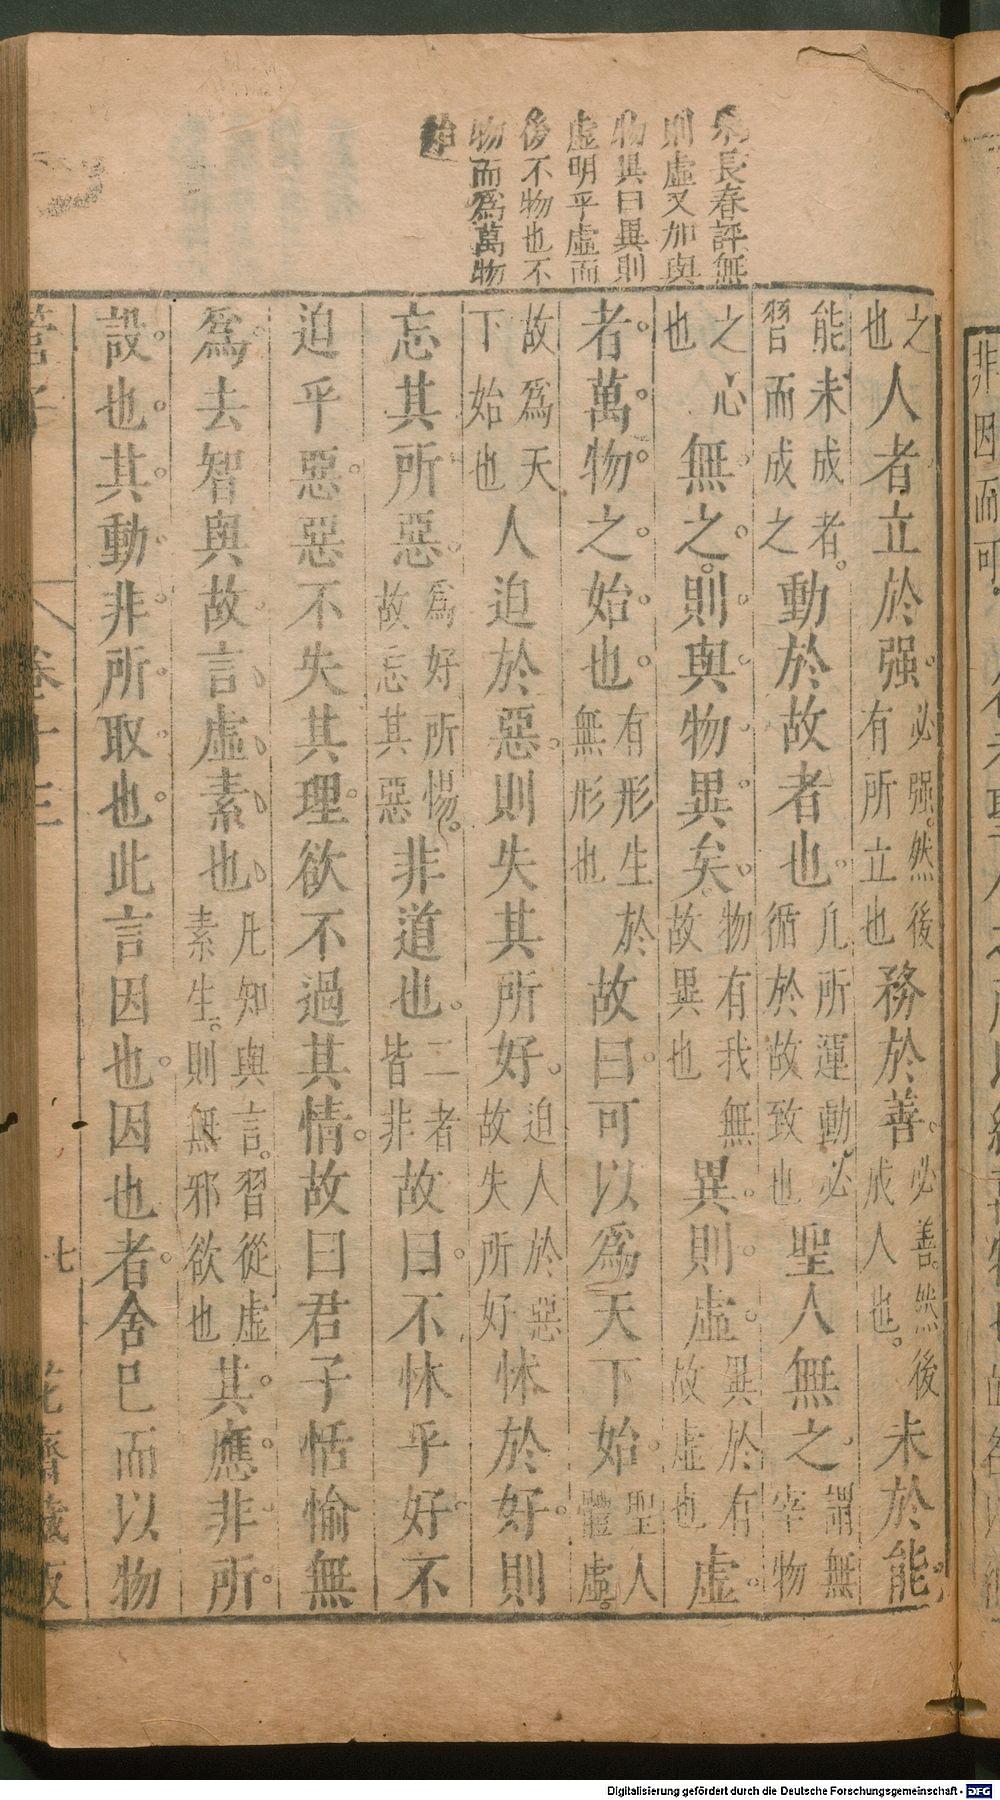 朱長春評無
則虛又加與
物異曰異則
虛明乎虛而
後不物也不
物而為萬物
始
之也人者立於强。必强。然後有所立也務於善。必善。然後成人也。未於能。
能未成者。習而成之動於故者也。凡所運動必循於故致也聖人無之。謂無宰物
之心也無之。則與物異矣。物有我無故異也異則虛。異於有故虛也虛。
者。萬物之始也。有形生於無形也故曰。可以為天下始。聖人體虛。
故為天下始也人迫於惡。則失其所好。迫人於惡故失所好怵於好。則
忘其所惡。為好所惕。故忘其惡非道也。二者皆非故曰。不怵乎好。不
迫乎惡。惡不失其理。欲不過其情。故曰君子恬愉無
爲。去智與故。言虛素也。凡知與言。習從虛素生。則無邪欲也其。應。非所。
設。也。其。動。非。所。取。也。此言因也。因也者。舍巳而以物
管子 卷十三 七 花齋藏板
非因而可
Digitalisierung gefördert durch die Deutsche Forschungsgemeinschaft - DFG